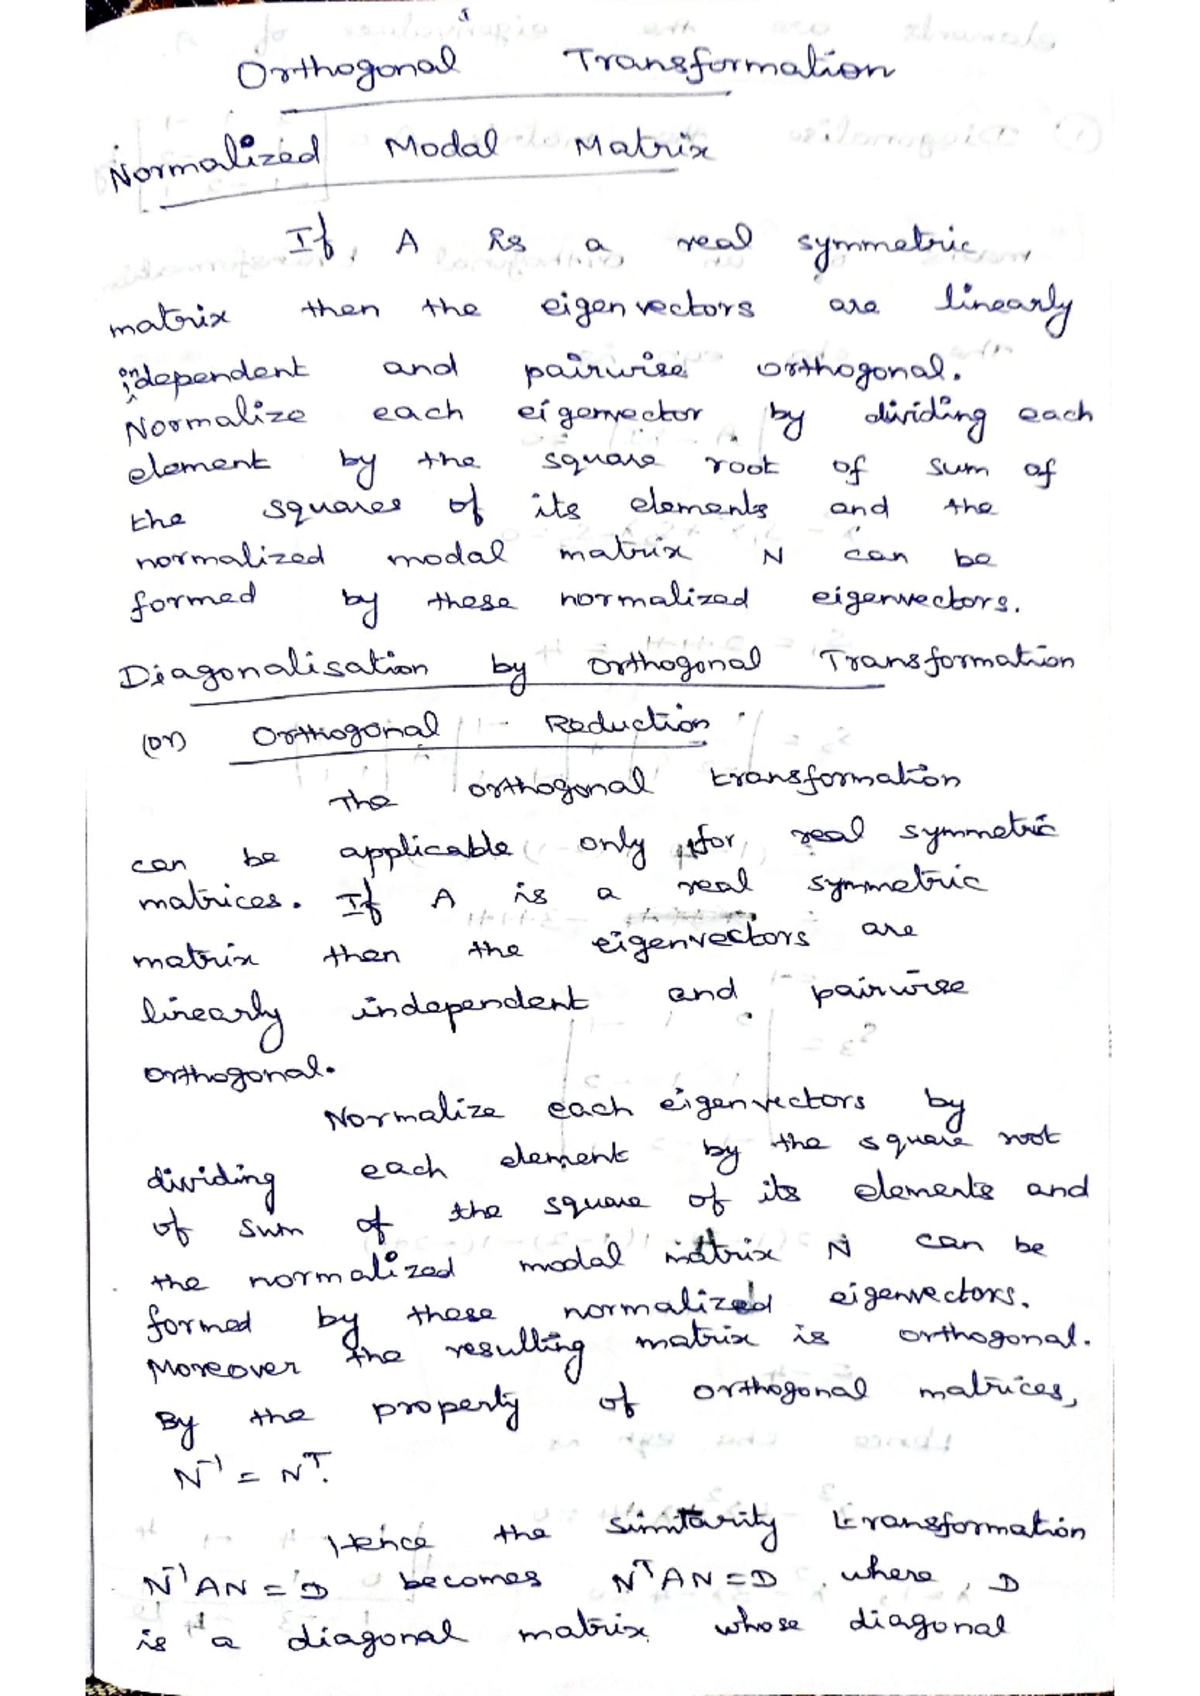 Orthogonal Transformation
Normalized Modal Matrix
If A is a real symmetric
matrix then the eigen vectors are linearly
independent and pairwise orthogonal.
Normalize each eigenvector by dividing each
element by the square root of sum of
the squares of its elements and the
normalized modal matrix N can be
formed by these normalized eigenvectors.
Diagonalisation by orthogonal Transformation
(or) Orthogonal Reduction
The orthogonal transformation
can be applicable only for real symmetric
matrices. If A is a real symmetric
matrix then the eigenvectors are
linearly independent and pairwise
orthogonal.
Normalize each eigenvectors by
dividing each element by the square root
of sum of the square of its elements and
the normalized modal matrix N can be
formed by these normalized eigenvectors.
Moreover the resulting matrix is orthogonal.
By the property of orthogonal matrices,
N⁻¹ = Nᵀ.
Hence the similarity transformation
N⁻¹AN = D becomes NᵀAN = D where, D
is a diagonal matrix whose diagonal